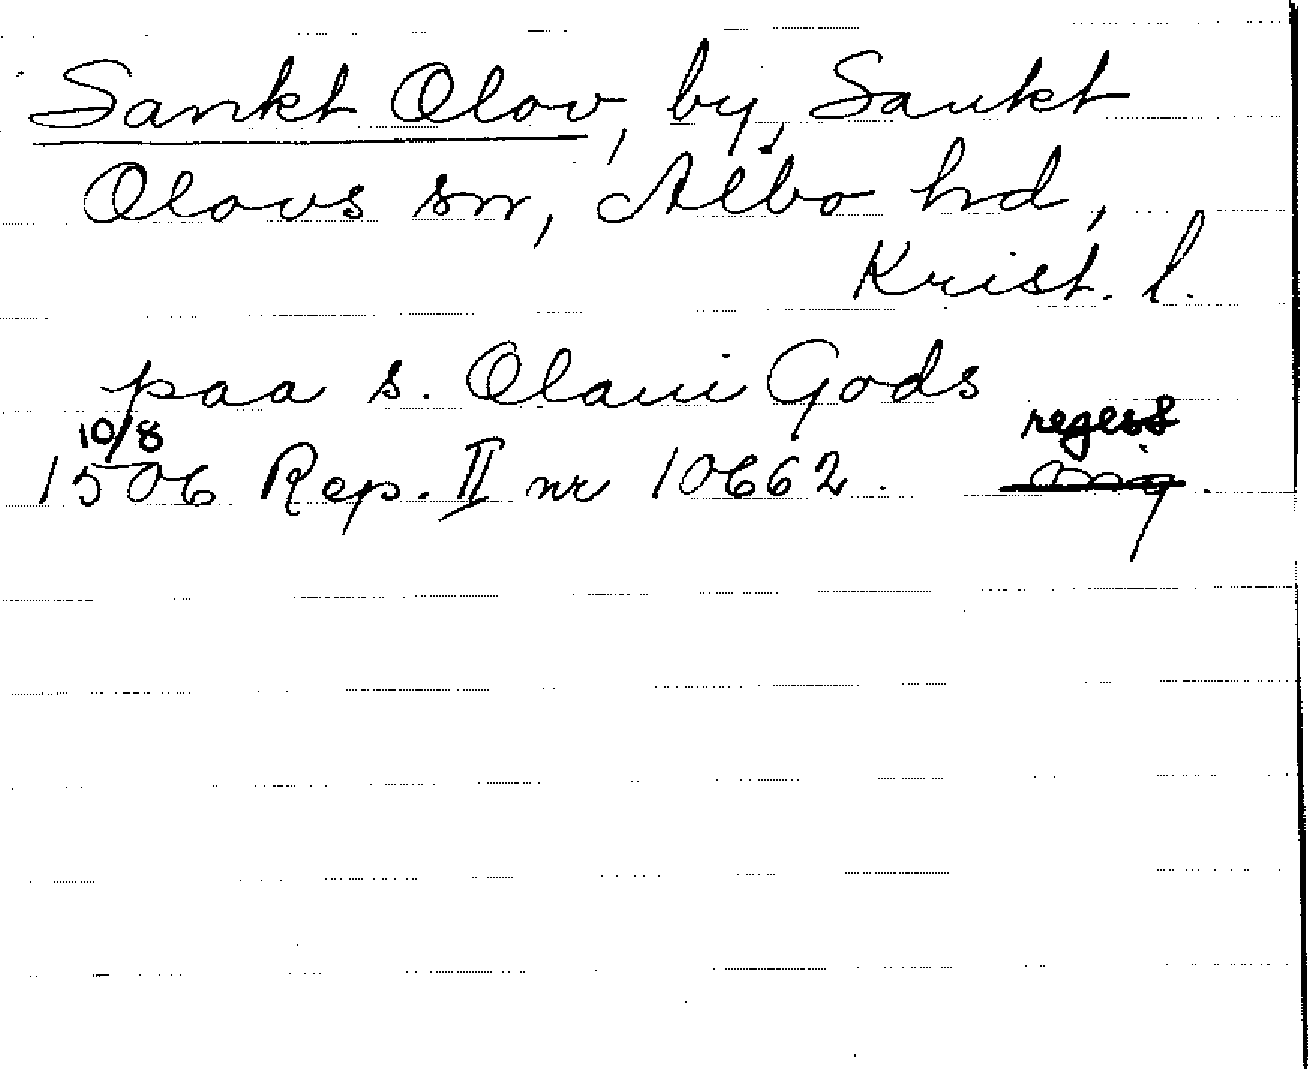 Sankt Olov, by, Sankt
Olovs sn, Albo hd,
Krist. l.
paa s. Olaui Gods
10/8 regest
1506 Rep. II nr 10662.